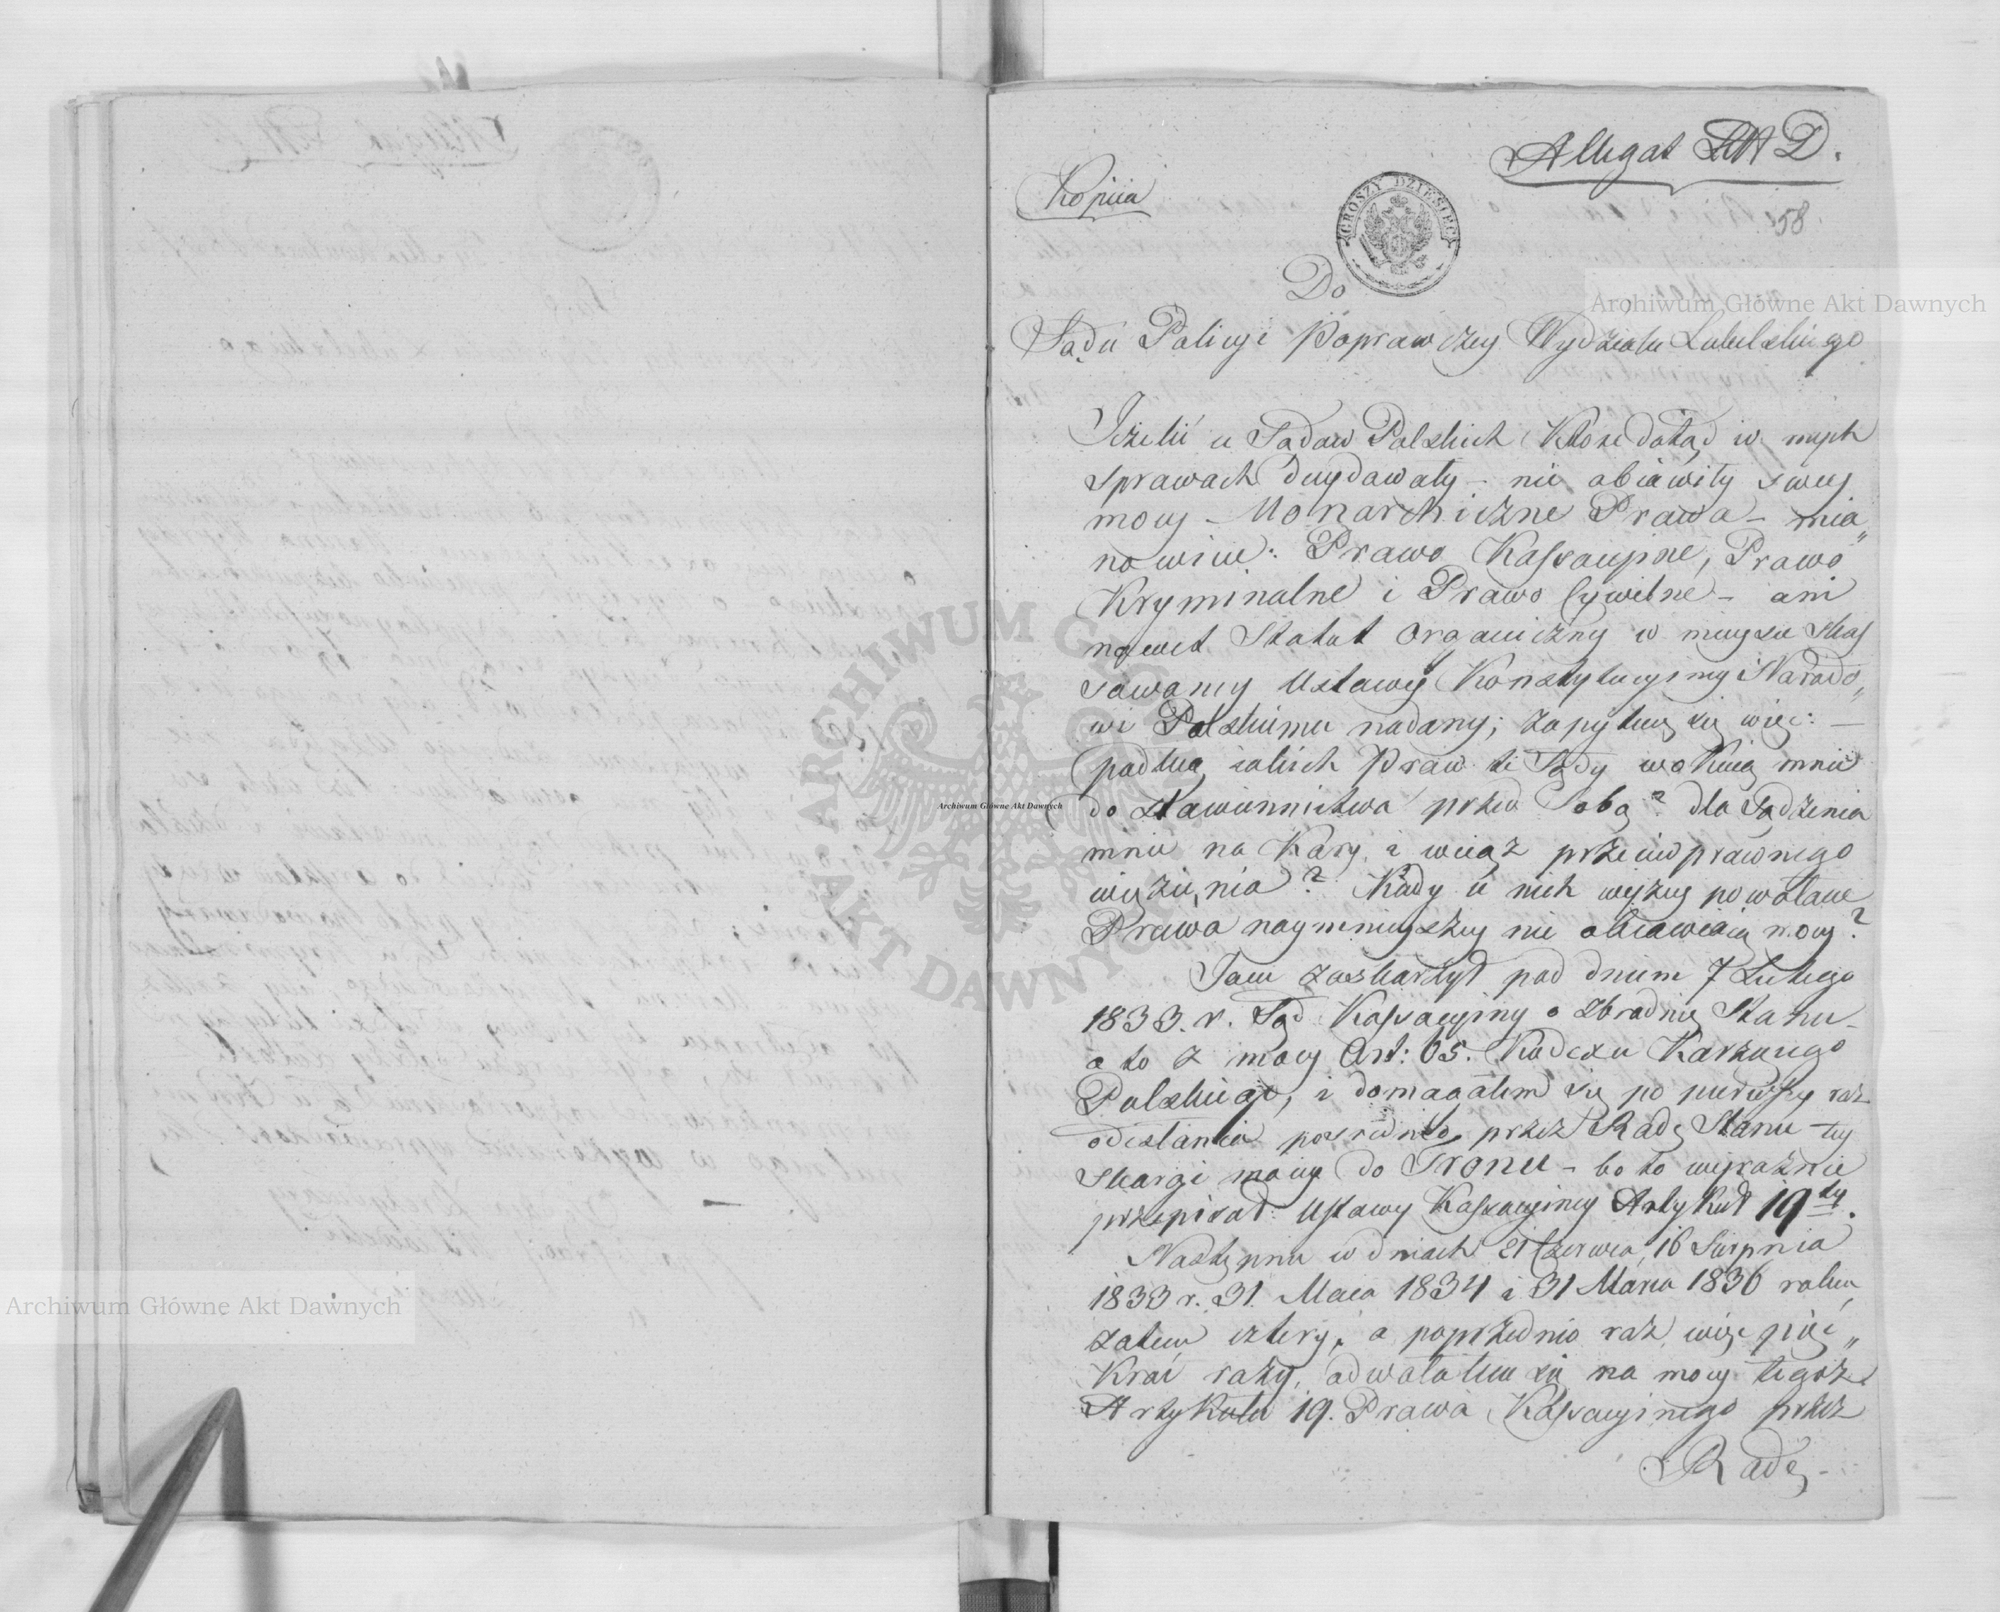 Allegat Litt D.
Kopiia
GROSZY DZIESIĘĆ
58
Do
Sądu Policyi Poprawczey Wydziału Lubelskiego
Jeżeli u Sądow Polskich które dotąd w mych
sprawach decydowały – nie obiawiły swey
mocy – Monarchiczne Prawa – mia„
nowicie: Prawo Kassacyine, Prawo
Kryminalne i Prawo Cywilne – ani
nawet Statut Organiczny w mieysce skas
sowaney Ustawy Konstytucyiney Narodo„
wi Polskiemu nadany; zapytuię się więc: –
podług iakich Praw te Sądy wokuią mnie
do stawiennictwa przed Sobą? dla Sądzenia
mnie na Kary i wciąż przeciwprawnego
więzienia? Kiedy u nich wyżey powołane
Prawa naymnieyszey nie obiawiaią mocy?
Jam zaskarżył pod dniem 7 Lutego
1833. r. Sąd Kassacyiny o zbrodnię Stanu –
a to z mocy Art: 65. Kodexu Karzącego
Polskiego, i domagałem się po pierwszy raz
odesłania pośrednio przez Radę Stanu tey
skargi moiey do Tronu – bo to wyraźnie
przepisał Ustawy Kassacyiney Artykuł 19ty.
Następnie w dniach 21 Czerwca, 16 Sierpnia
1833 r. 31. Maia 1834 i 31 Marca 1836 roku,
zatem cztery, a poprzednio raz, więc pięć„
kroć razy, odwołałem się na mocy tegoż
Artykułu 19. Prawa Kassacyinego przez
Radę –
Archiwum Główne Akt Dawnych
Archiwum Główne Akt Dawnych
Archiwum Główne Akt Dawnych
ARCHIWUM GŁÓWNE AKT DAWNYCH